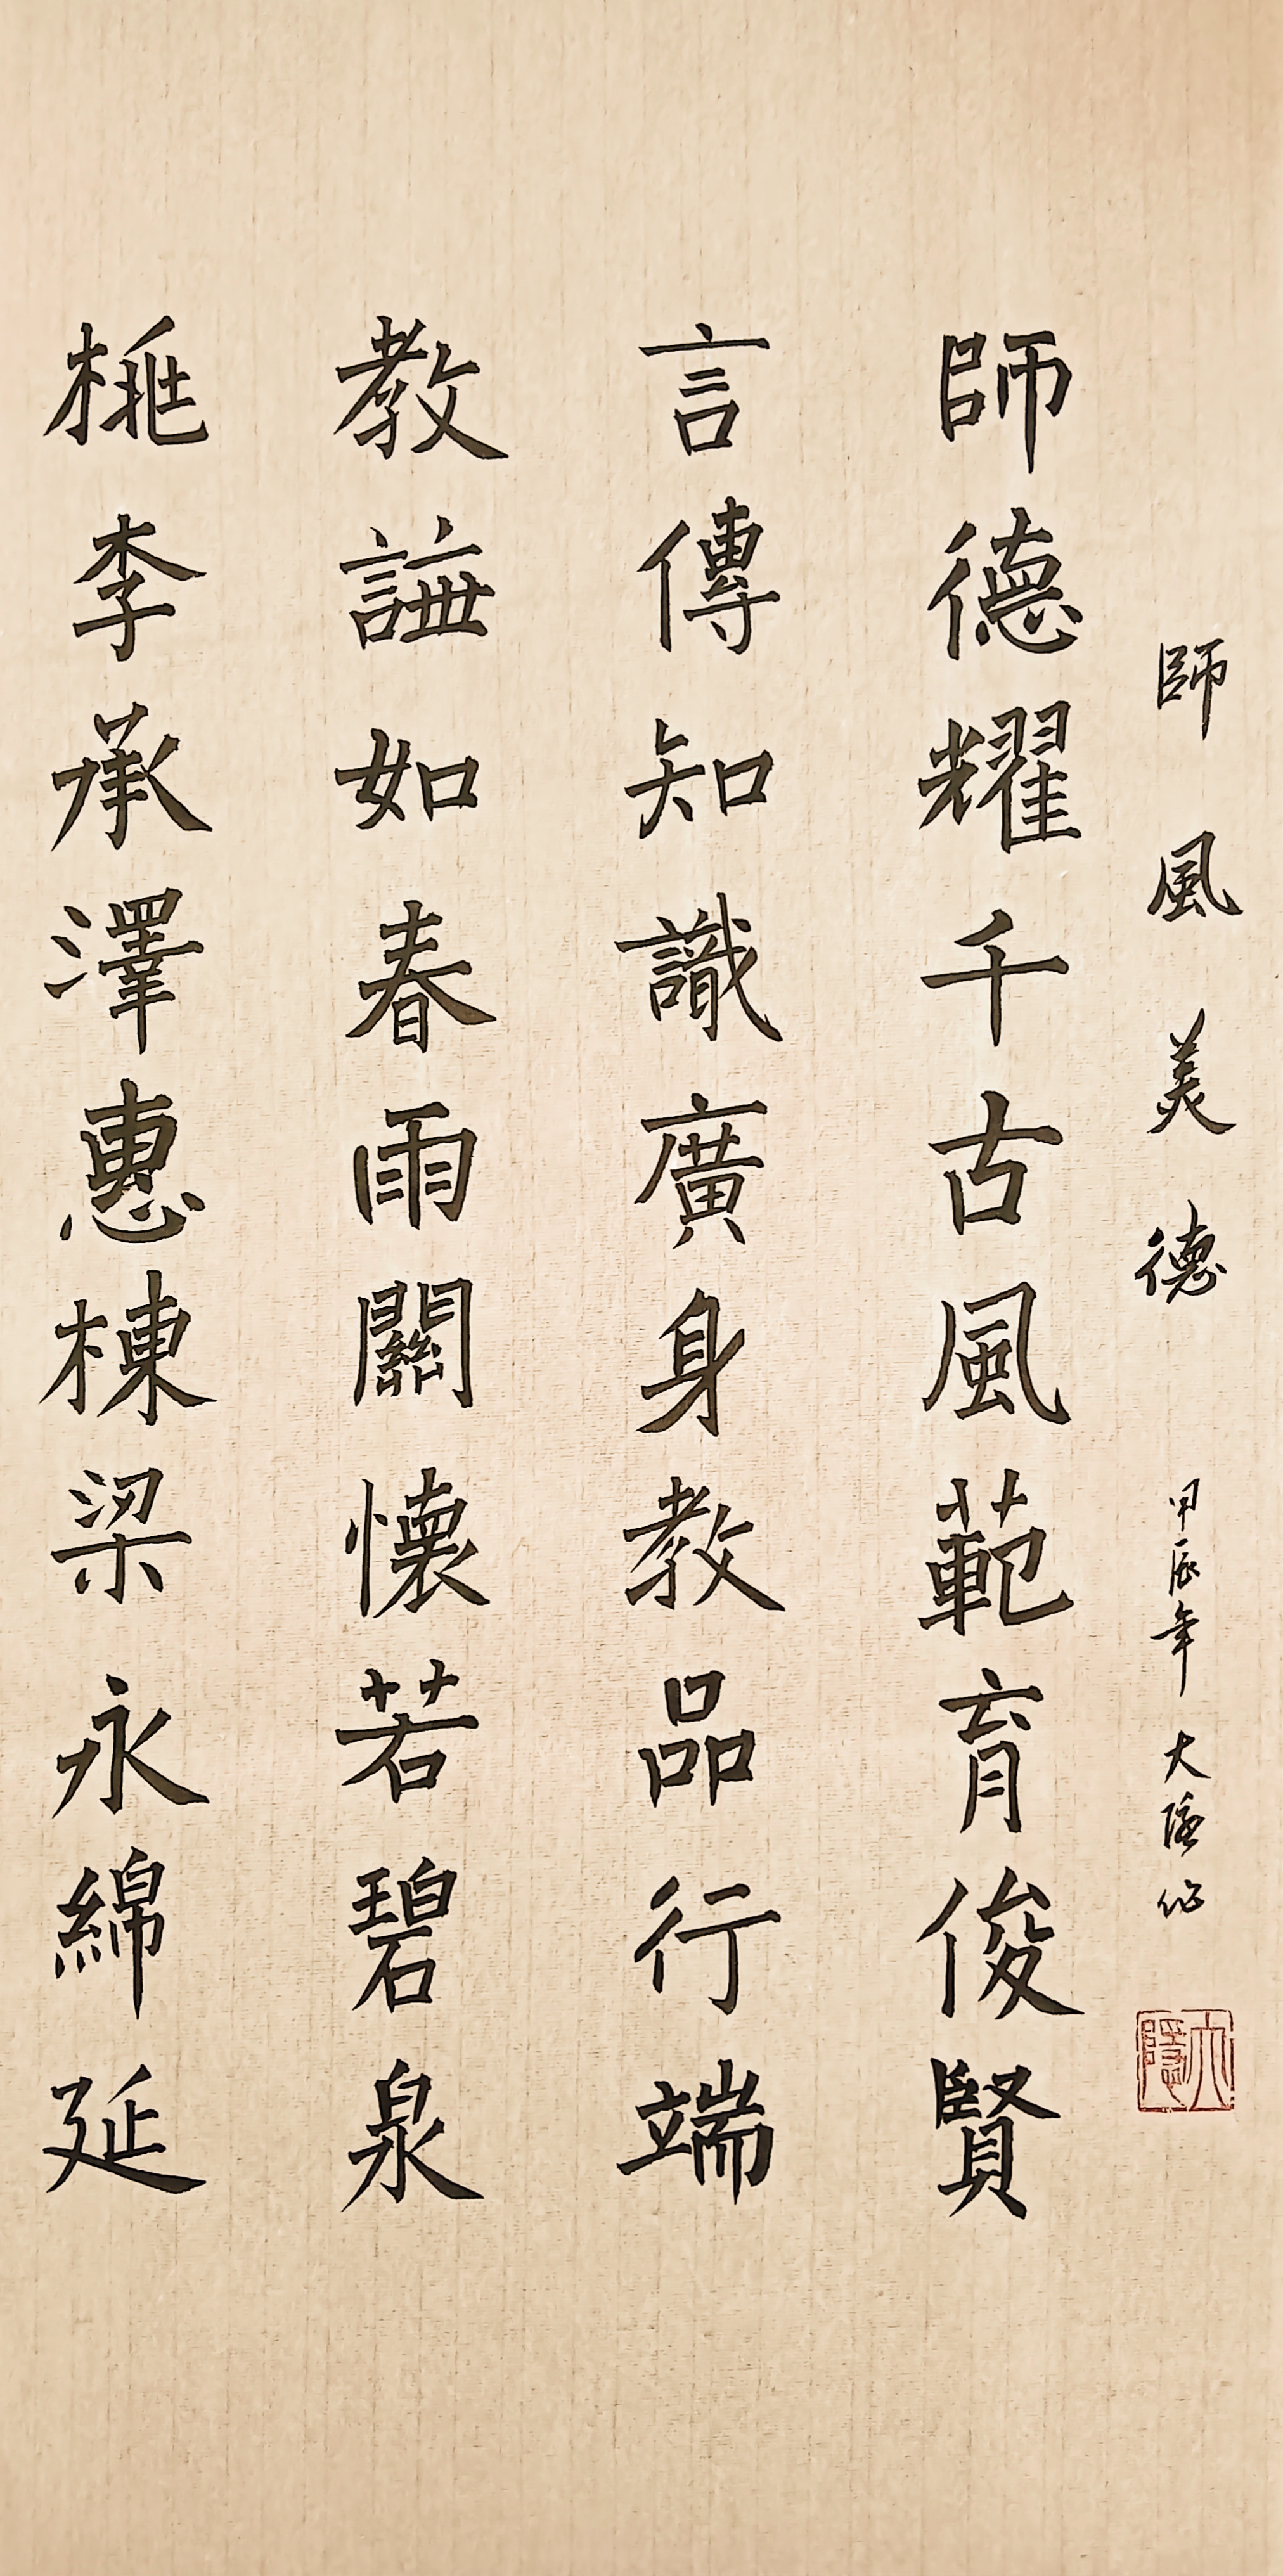 師風美德 甲辰年 大隱作
大隱
師德耀千古風範育俊賢
言傳知識廣身教品行端
教誨如春雨關懷若碧泉
桃李承澤惠棟梁永綿延